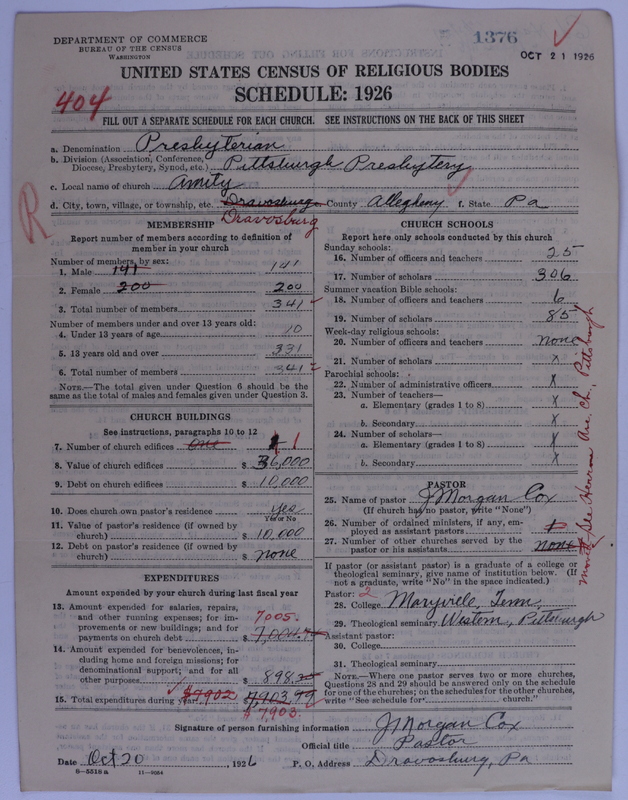 DEPARTMENT OF COMMERCE
BUREAU OF THE CENSUS
WASHINGTON
1376
OCT 21 1926
UNITED STATES CENSUS OF RELIGIOUS BODIES
SCHEDULE: 1926
404
FILL OUT A SEPARATE SCHEDULE FOR EACH CHURCH. SEE INSTRUCTIONS ON THE BACK OF THIS SHEET
a. Denomination Presbyterian
b. Division (Association, Conference, Diocese, Presbytery, Synod, etc.) Pittsburgh Presbytery
c. Local name of church Amity
d. City, town, village, or township, etc. Dravosburg County Allegheny f. State Pa
R
Dravosburg
MEMBERSHIP
Report number of members according to definition of
member in your church
Number of members, by sex:
1. Male 141 141
2. Female 200 200
3. Total number of members 341
Number of members under and over 13 years old:
4. Under 13 years of age 10
5. 13 years old and over 331
6. Total number of members 341
NOTE.—The total given under Question 6 should be
same as the total of males and females given under Question 3.
CHURCH BUILDINGS
See instructions, paragraphs 10 to 12
7. Number of church edifices One 1
8. Value of church edifices $ 36,000
9. Debt on church edifices $ 10,000
10. Does church own pastor's residence yes
Yes or No
11. Value of pastor's residence (if owned by
church) $ 10,000
12. Debt on pastor's residence (if owned by
church) $ none
EXPENDITURES
Amount expended by your church during last fiscal year
13. Amount expended for salaries, repairs,
and other running expenses; for im-
provements or new buildings; and for
payments on church debt 7005. $ 7,004.74
14. Amount expended for benevolences, in-
cluding home and foreign missions; for
denominational support; and for all
other purposes $ 898.25
15. Total expenditures during year $7902 $7,903.99
$7903.
CHURCH SCHOOLS
Report here only schools conducted by this church
Sunday schools:
16. Number of officers and teachers 25
17. Number of scholars 306
Summer vacation Bible schools:
18. Number of officers and teachers 6
19. Number of scholars 85
Week-day religious schools:
20. Number of officers and teachers none
21. Number of scholars x
Parochial schools:
22. Number of administrative officers x
23. Number of teachers—
a. Elementary (grades 1 to 8) x
b. Secondary x
24. Number of scholars—
a. Elementary (grades 1 to 8) x
b. Secondary x
PASTOR
25. Name of pastor J Morgan Cox
(If church has no pastor, write "None")
26. Number of ordained ministers, if any, em-
ployed as assistant pastors 1
27. Number of other churches served by the
pastor or his assistants none
If pastor (or assistant pastor) is a graduate of a college or
theological seminary, give name of institution below. (If
not a graduate, write "No" in the space indicated.)
Pastor: 2
28. College Maryville, Tenn.
29. Theological seminary Western, Pittsburgh
Assistant pastor:
30. College
31. Theological seminary
NOTE.—Where one pastor serves two or more churches,
Questions 28 and 29 should be answered only on the schedule
for one of the churches; on the schedules for the other churches,
write "See schedule for church."
Ave. Ch., Pittsburgh
Signature of person furnishing information J Morgan Cox
Official title Pastor
Date Oct 20, 1926 P. O. Address Dravosburg, Pa
8—5318 a 11—9054